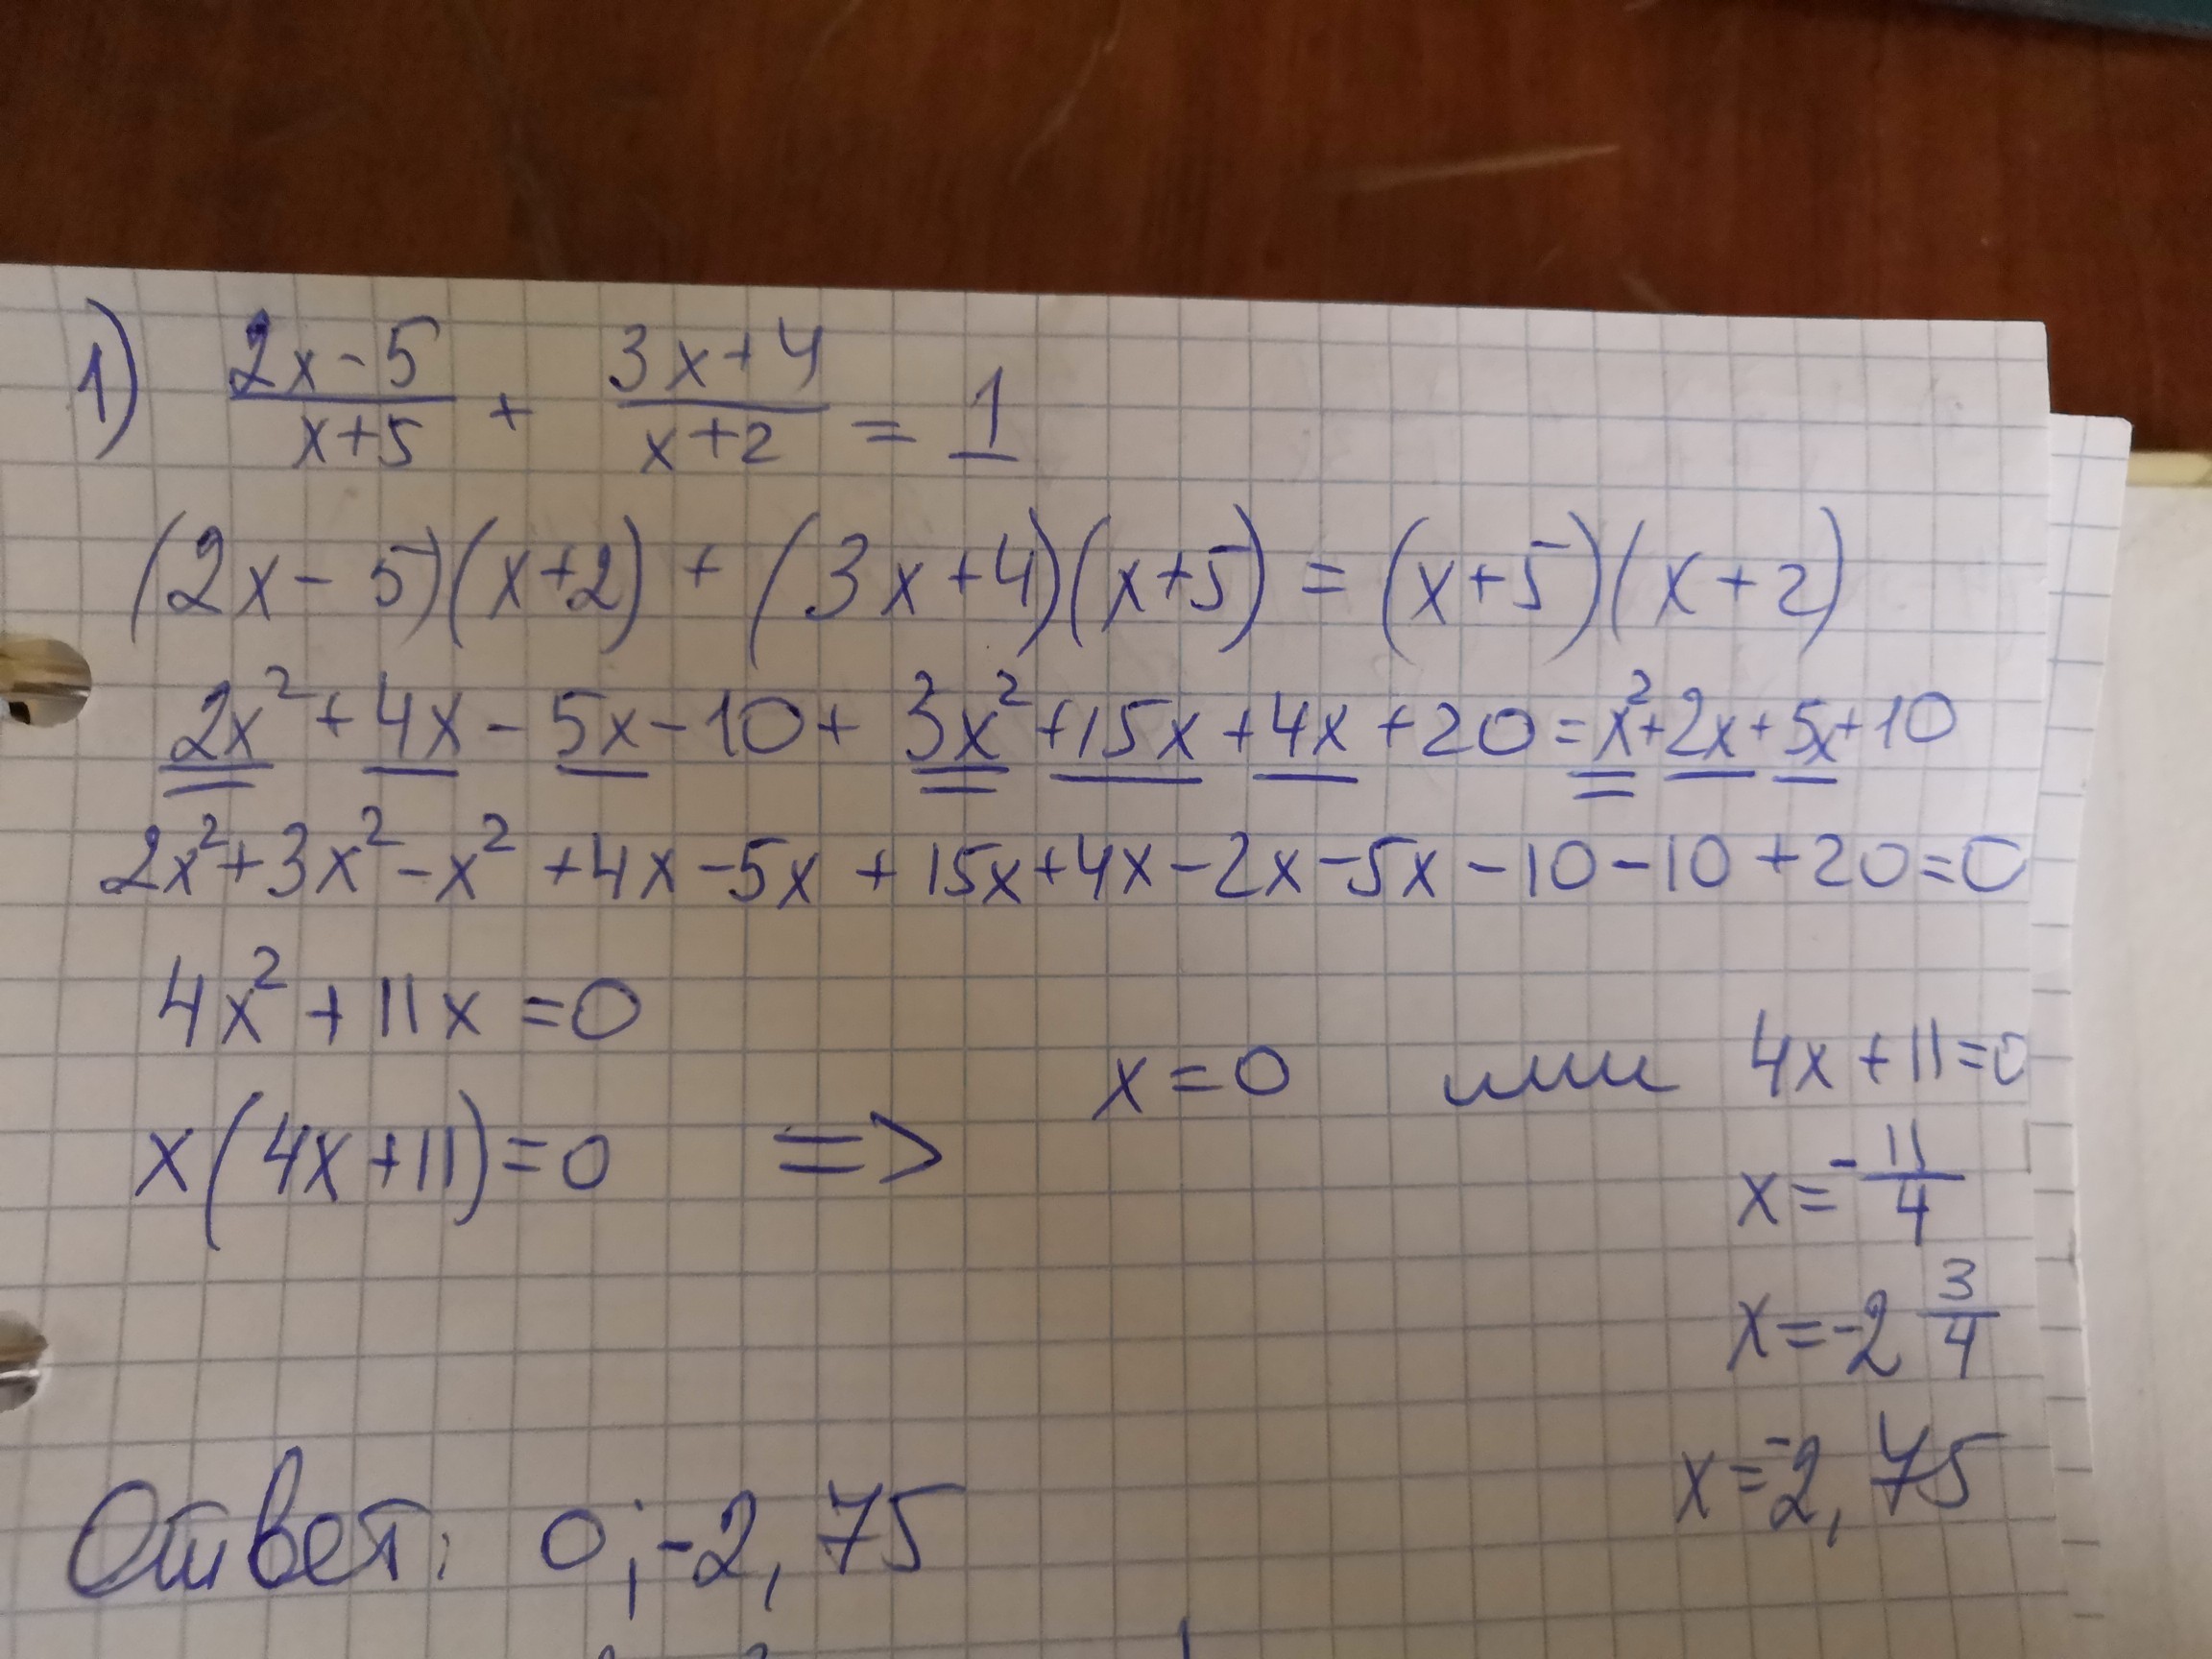 1) (2x-5)/(x+5) + (3x+4)/(x+2) = 1
(2x-5)(x+2) + (3x+4)(x+5) = (x+5)(x+2)
2x² + 4x - 5x - 10 + 3x² + 15x + 4x + 20 = x² + 2x + 5x + 10
2x² + 3x² - x² + 4x - 5x + 15x + 4x - 2x - 5x - 10 - 10 + 20 = 0
4x² + 11x = 0
x(4x+11) = 0 => x = 0 или 4x + 11 = 0
x = -11/4
x = -2 3/4
x = -2,75
Ответ: 0; -2,75